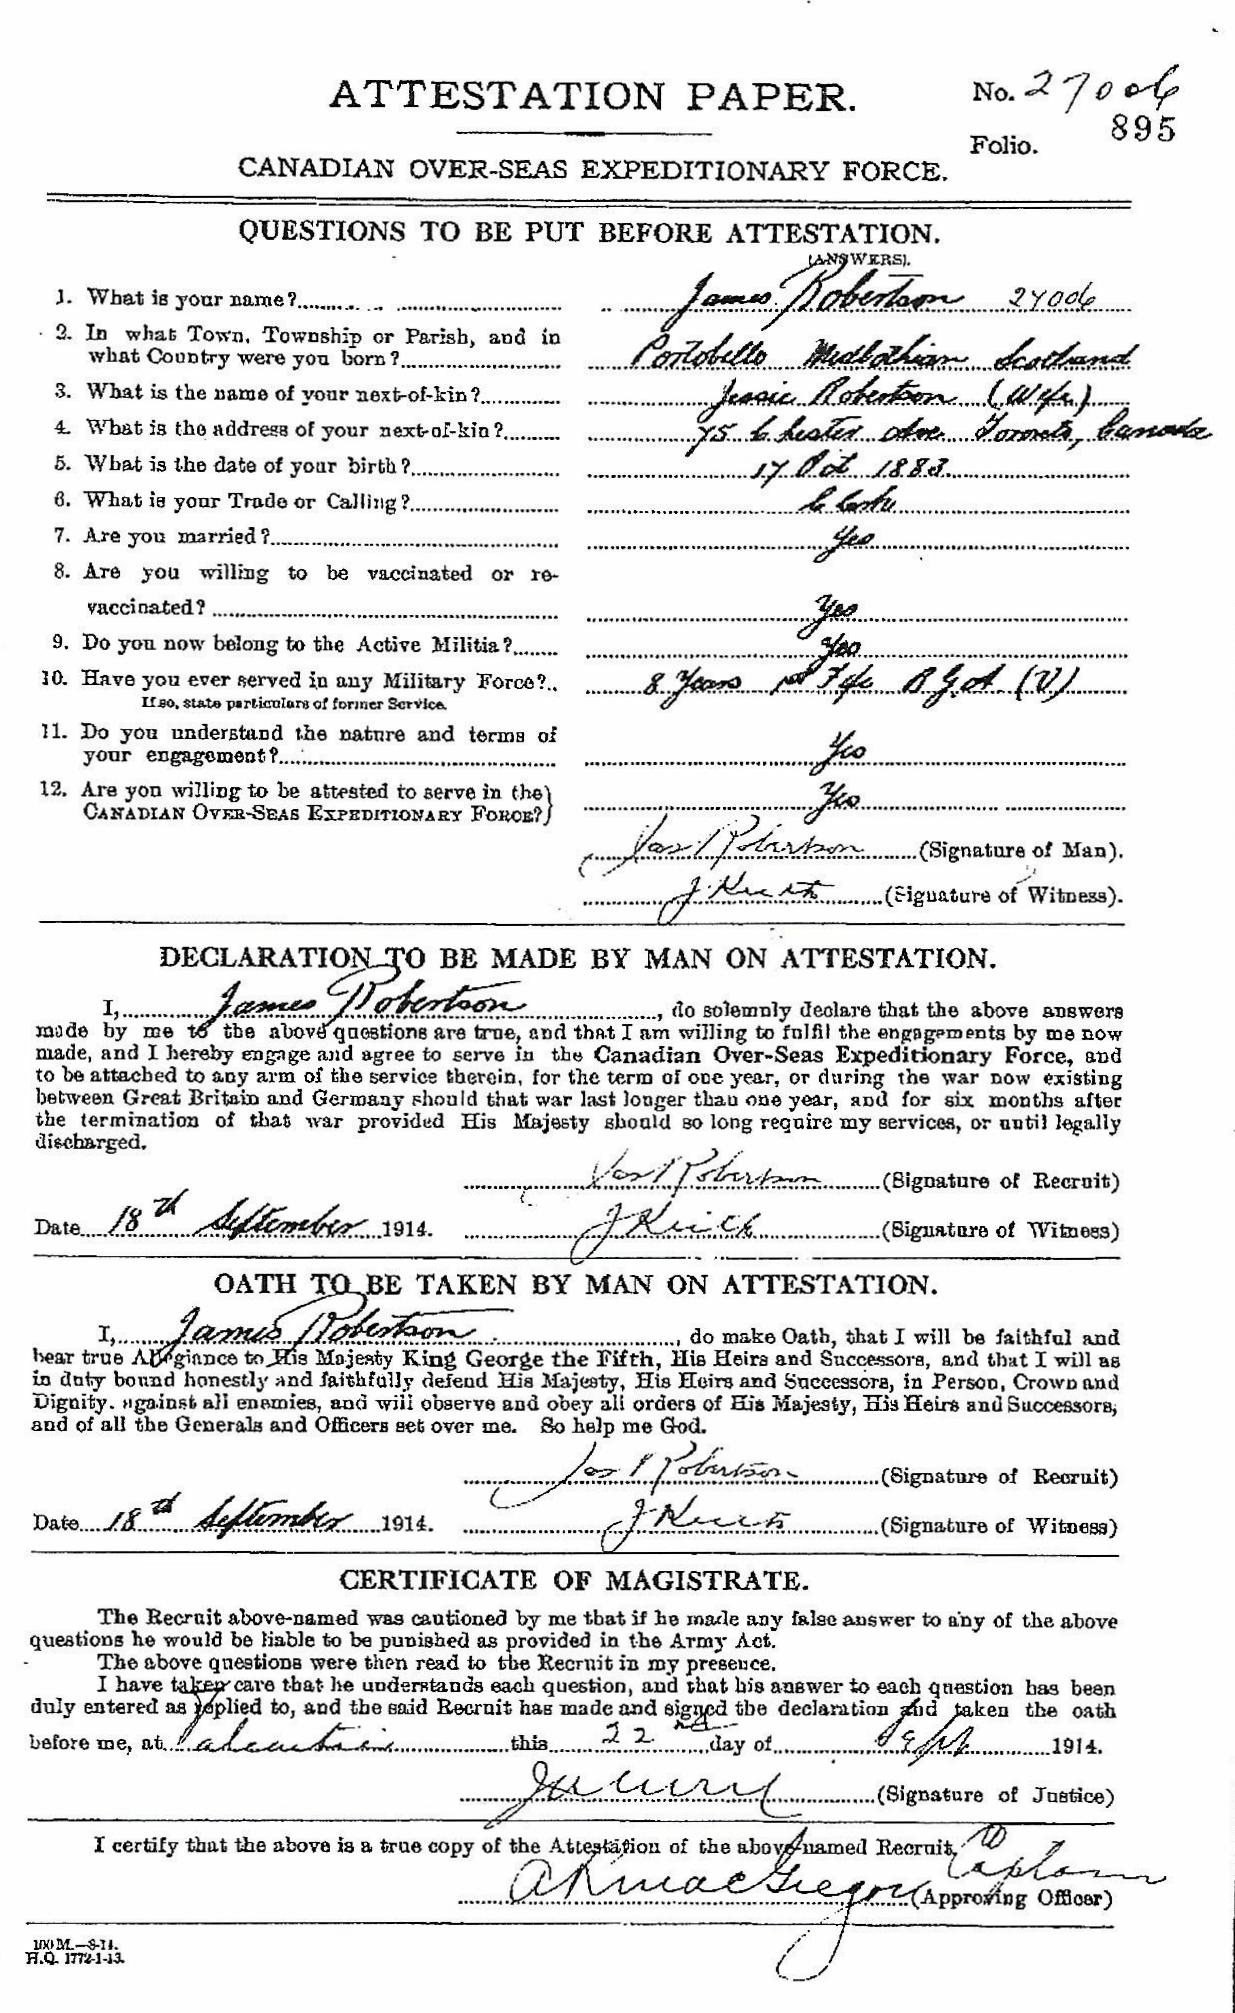 ATTESTATION PAPER.
No. 27006
Folio. 895
CANADIAN OVER-SEAS EXPEDITIONARY FORCE.
QUESTIONS TO BE PUT BEFORE ATTESTATION.
(ANSWERS).
1. What is your name? James Robertson 27006
2. In what Town, Township or Parish, and in
what Country were you born? Portobello Midlothian Scotland
3. What is the name of your next-of-kin? Jessie Robertson (Wife)
4. What is the address of your next-of-kin? 75 Chester Ave Toronto, Canada
5. What is the date of your birth? 17 Oct 1883
6. What is your Trade or Calling? Clerk
7. Are you married? Yes
8. Are you willing to be vaccinated or re-
vaccinated? Yes
9. Do you now belong to the Active Militia? Yes
10. Have you ever served in any Military Force? 8 Years 1st R.G.A. (V)
If so, state particulars of former Service.
11. Do you understand the nature and terms of
your engagement? Yes
12. Are you willing to be attested to serve in the
CANADIAN OVER-SEAS EXPEDITIONARY FORCE? Yes
Jas Robertson (Signature of Man).
J. (Signature of Witness).
DECLARATION TO BE MADE BY MAN ON ATTESTATION.
I, James Robertson, do solemnly declare that the above answers
made by me to the above questions are true, and that I am willing to fulfil the engagements by me now
made, and I hereby engage and agree to serve in the Canadian Over-Seas Expeditionary Force, and
to be attached to any arm of the service therein, for the term of one year, or during the war now existing
between Great Britain and Germany should that war last longer than one year, and for six months after
the termination of that war provided His Majesty should so long require my services, or until legally
discharged.
Jas Robertson (Signature of Recruit)
Date 18th September 1914. J (Signature of Witness)
OATH TO BE TAKEN BY MAN ON ATTESTATION.
I, James Robertson, do make Oath, that I will be faithful and
bear true Allegiance to His Majesty King George the Fifth, His Heirs and Successors, and that I will as
in duty bound honestly and faithfully defend His Majesty, His Heirs and Successors, in Person, Crown and
Dignity, against all enemies, and will observe and obey all orders of His Majesty, His Heirs and Successors,
and of all the Generals and Officers set over me. So help me God.
Jas Robertson (Signature of Recruit)
Date 18th September 1914. J (Signature of Witness)
CERTIFICATE OF MAGISTRATE.
The Recruit above-named was cautioned by me that if he made any false answer to any of the above
questions he would be liable to be punished as provided in the Army Act.
The above questions were then read to the Recruit in my presence.
I have taken care that he understands each question, and that his answer to each question has been
duly entered as replied to, and the said Recruit has made and signed the declaration and taken the oath
before me, at Valcartier this 22nd day of Sept 1914.
(Signature of Justice)
I certify that the above is a true copy of the Attestation of the above-named Recruit.
MacGregor Captain (Approving Officer)
100 M.—8-14.
H.Q. 1772-1-13.